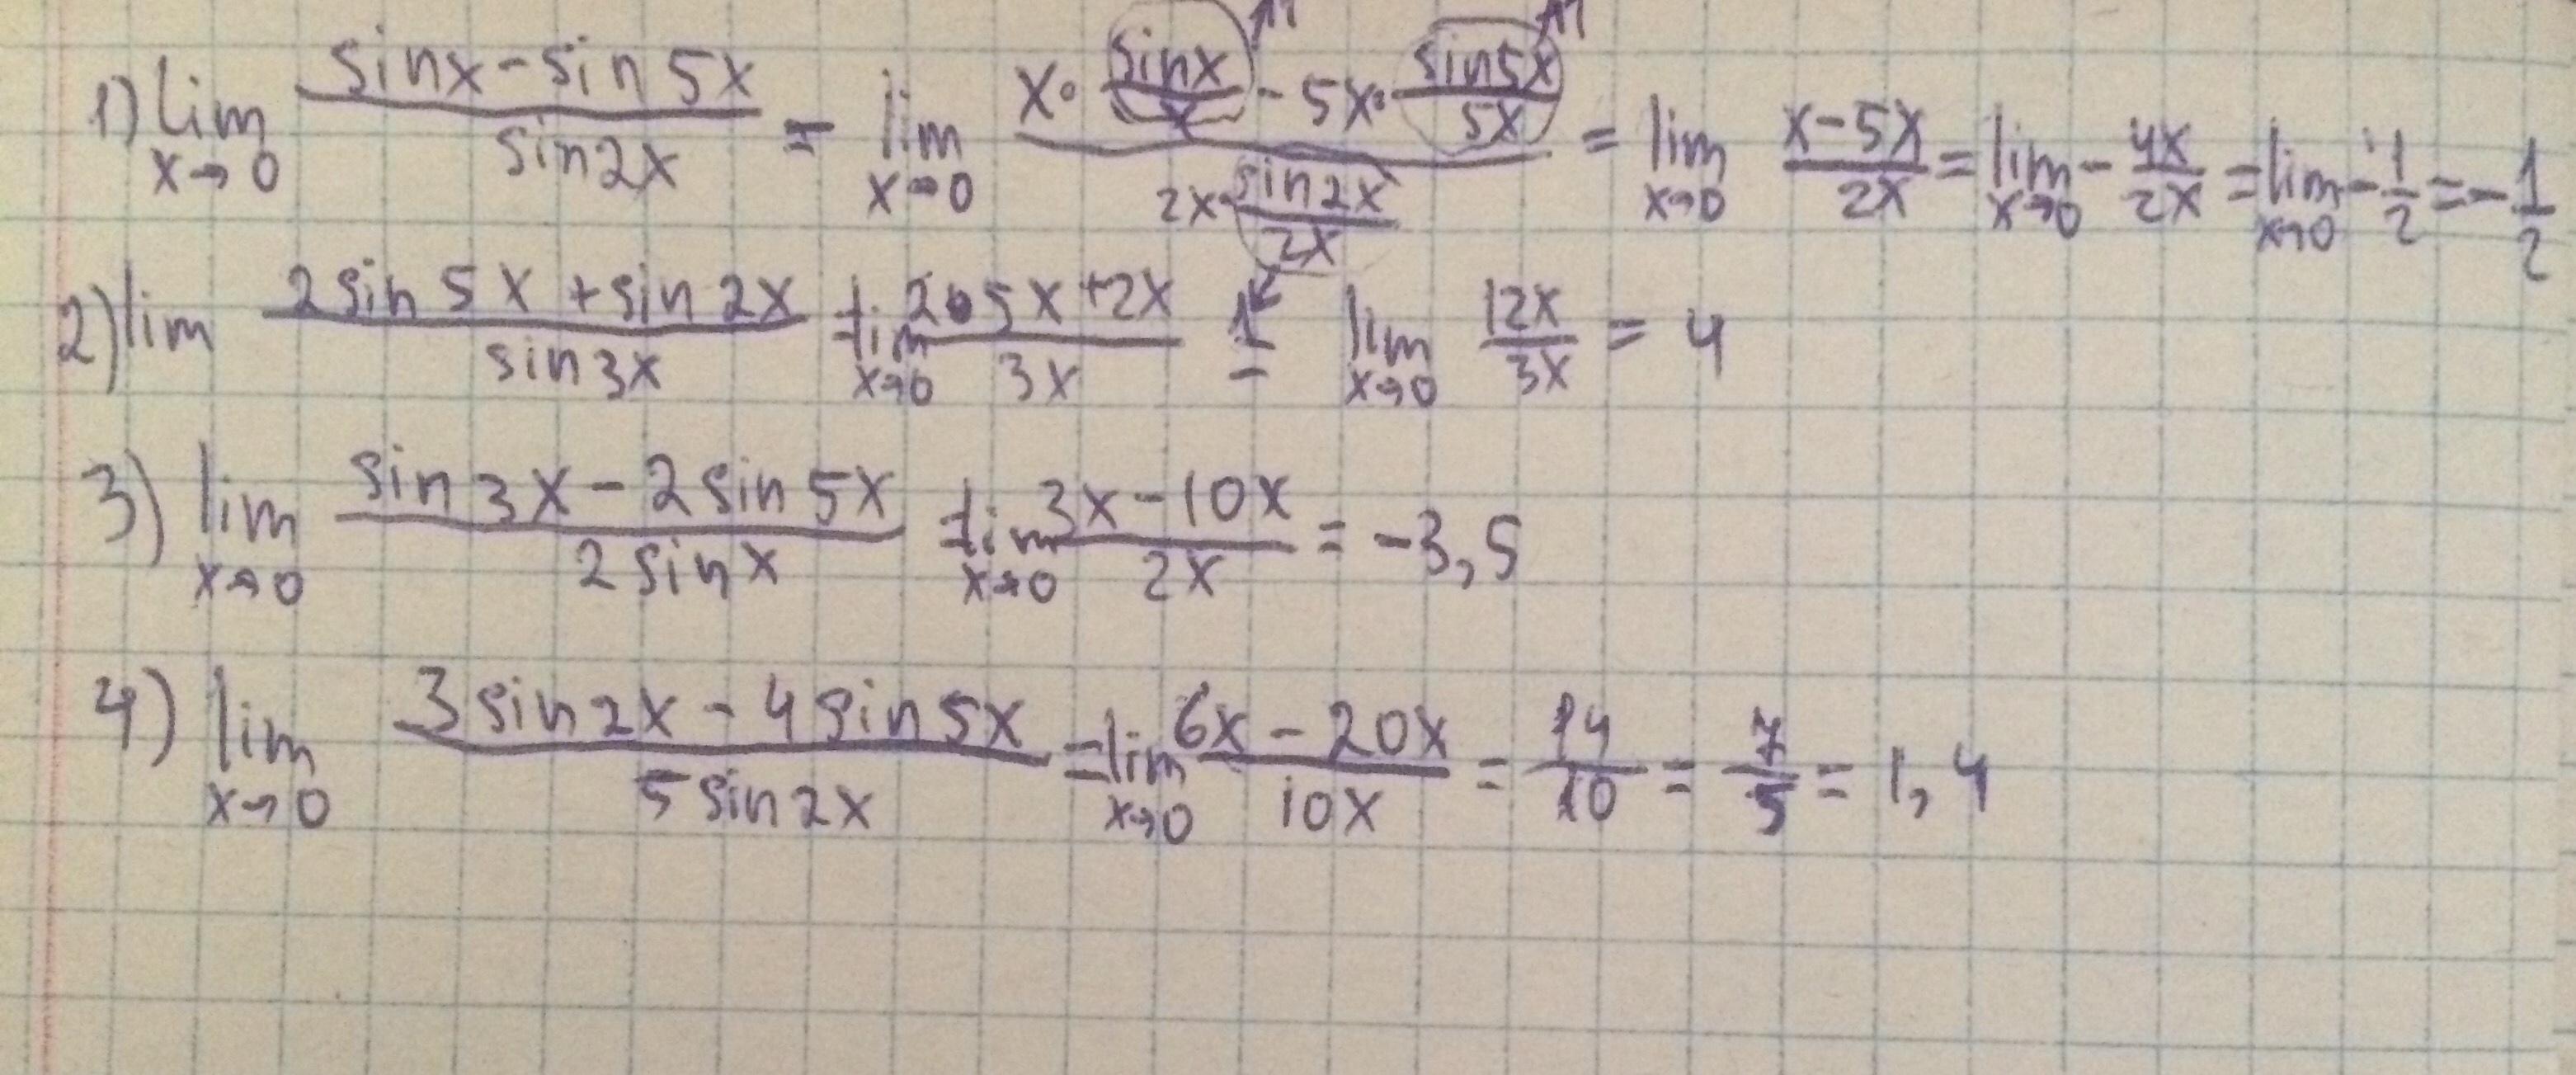 1) lim x→0 (sinx - sin 5x)/(sin2x) = lim x→0 (x · (sinx)/x - 5x · (sin5x)/(5x))/(2x · (sin2x)/(2x)) = lim x→0 (x-5x)/(2x) = lim x→0 - (4x)/(2x) = lim x→0 - 1/2 = - 1/2
2) lim (2 sin 5x + sin 2x)/(sin 3x) = lim x→0 (2·5x + 2x)/(3x) = lim x→0 (12x)/(3x) = 4
3) lim x→0 (sin 3x - 2 sin 5x)/(2 sin x) = lim x→0 (3x - 10x)/(2x) = -3,5
4) lim x→0 (3 sin 2x - 4 sin 5x)/(5 sin 2x) = lim x→0 (6x - 20x)/(10x) = 14/10 = 7/5 = 1,4